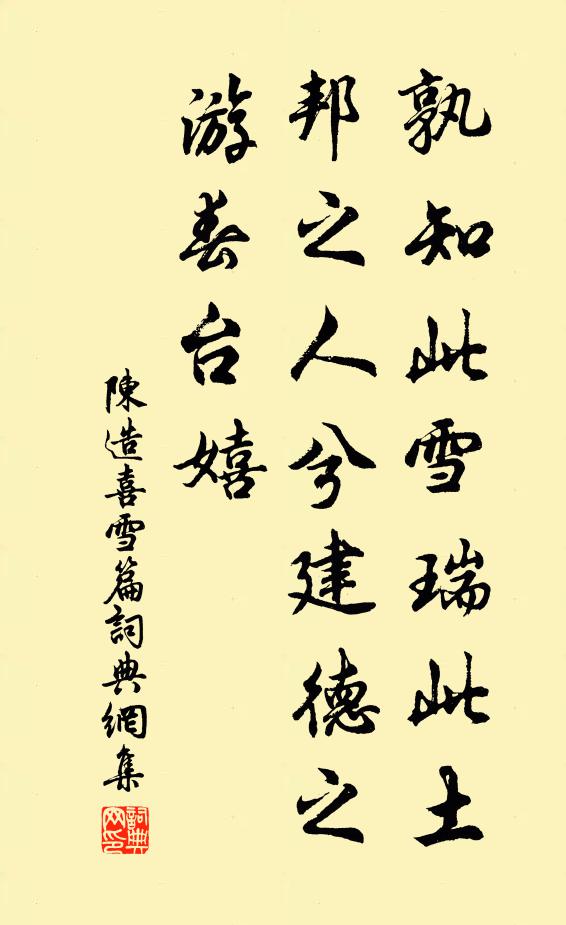 孰知此雪瑞此土
邦之人兮建德之
游春台嬉
陳造喜雪篇詞典網集
詞典网印